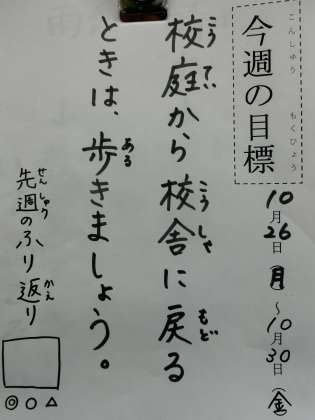 こんしゅう もくひょう
今週の目標
10月26日(月)~10月30日(金)
こうてい こうしゃ もど
校庭から校舎に戻る
ある
ときは、歩きましょう。
せんしゅう かえ
先週のふり返り
◎○△